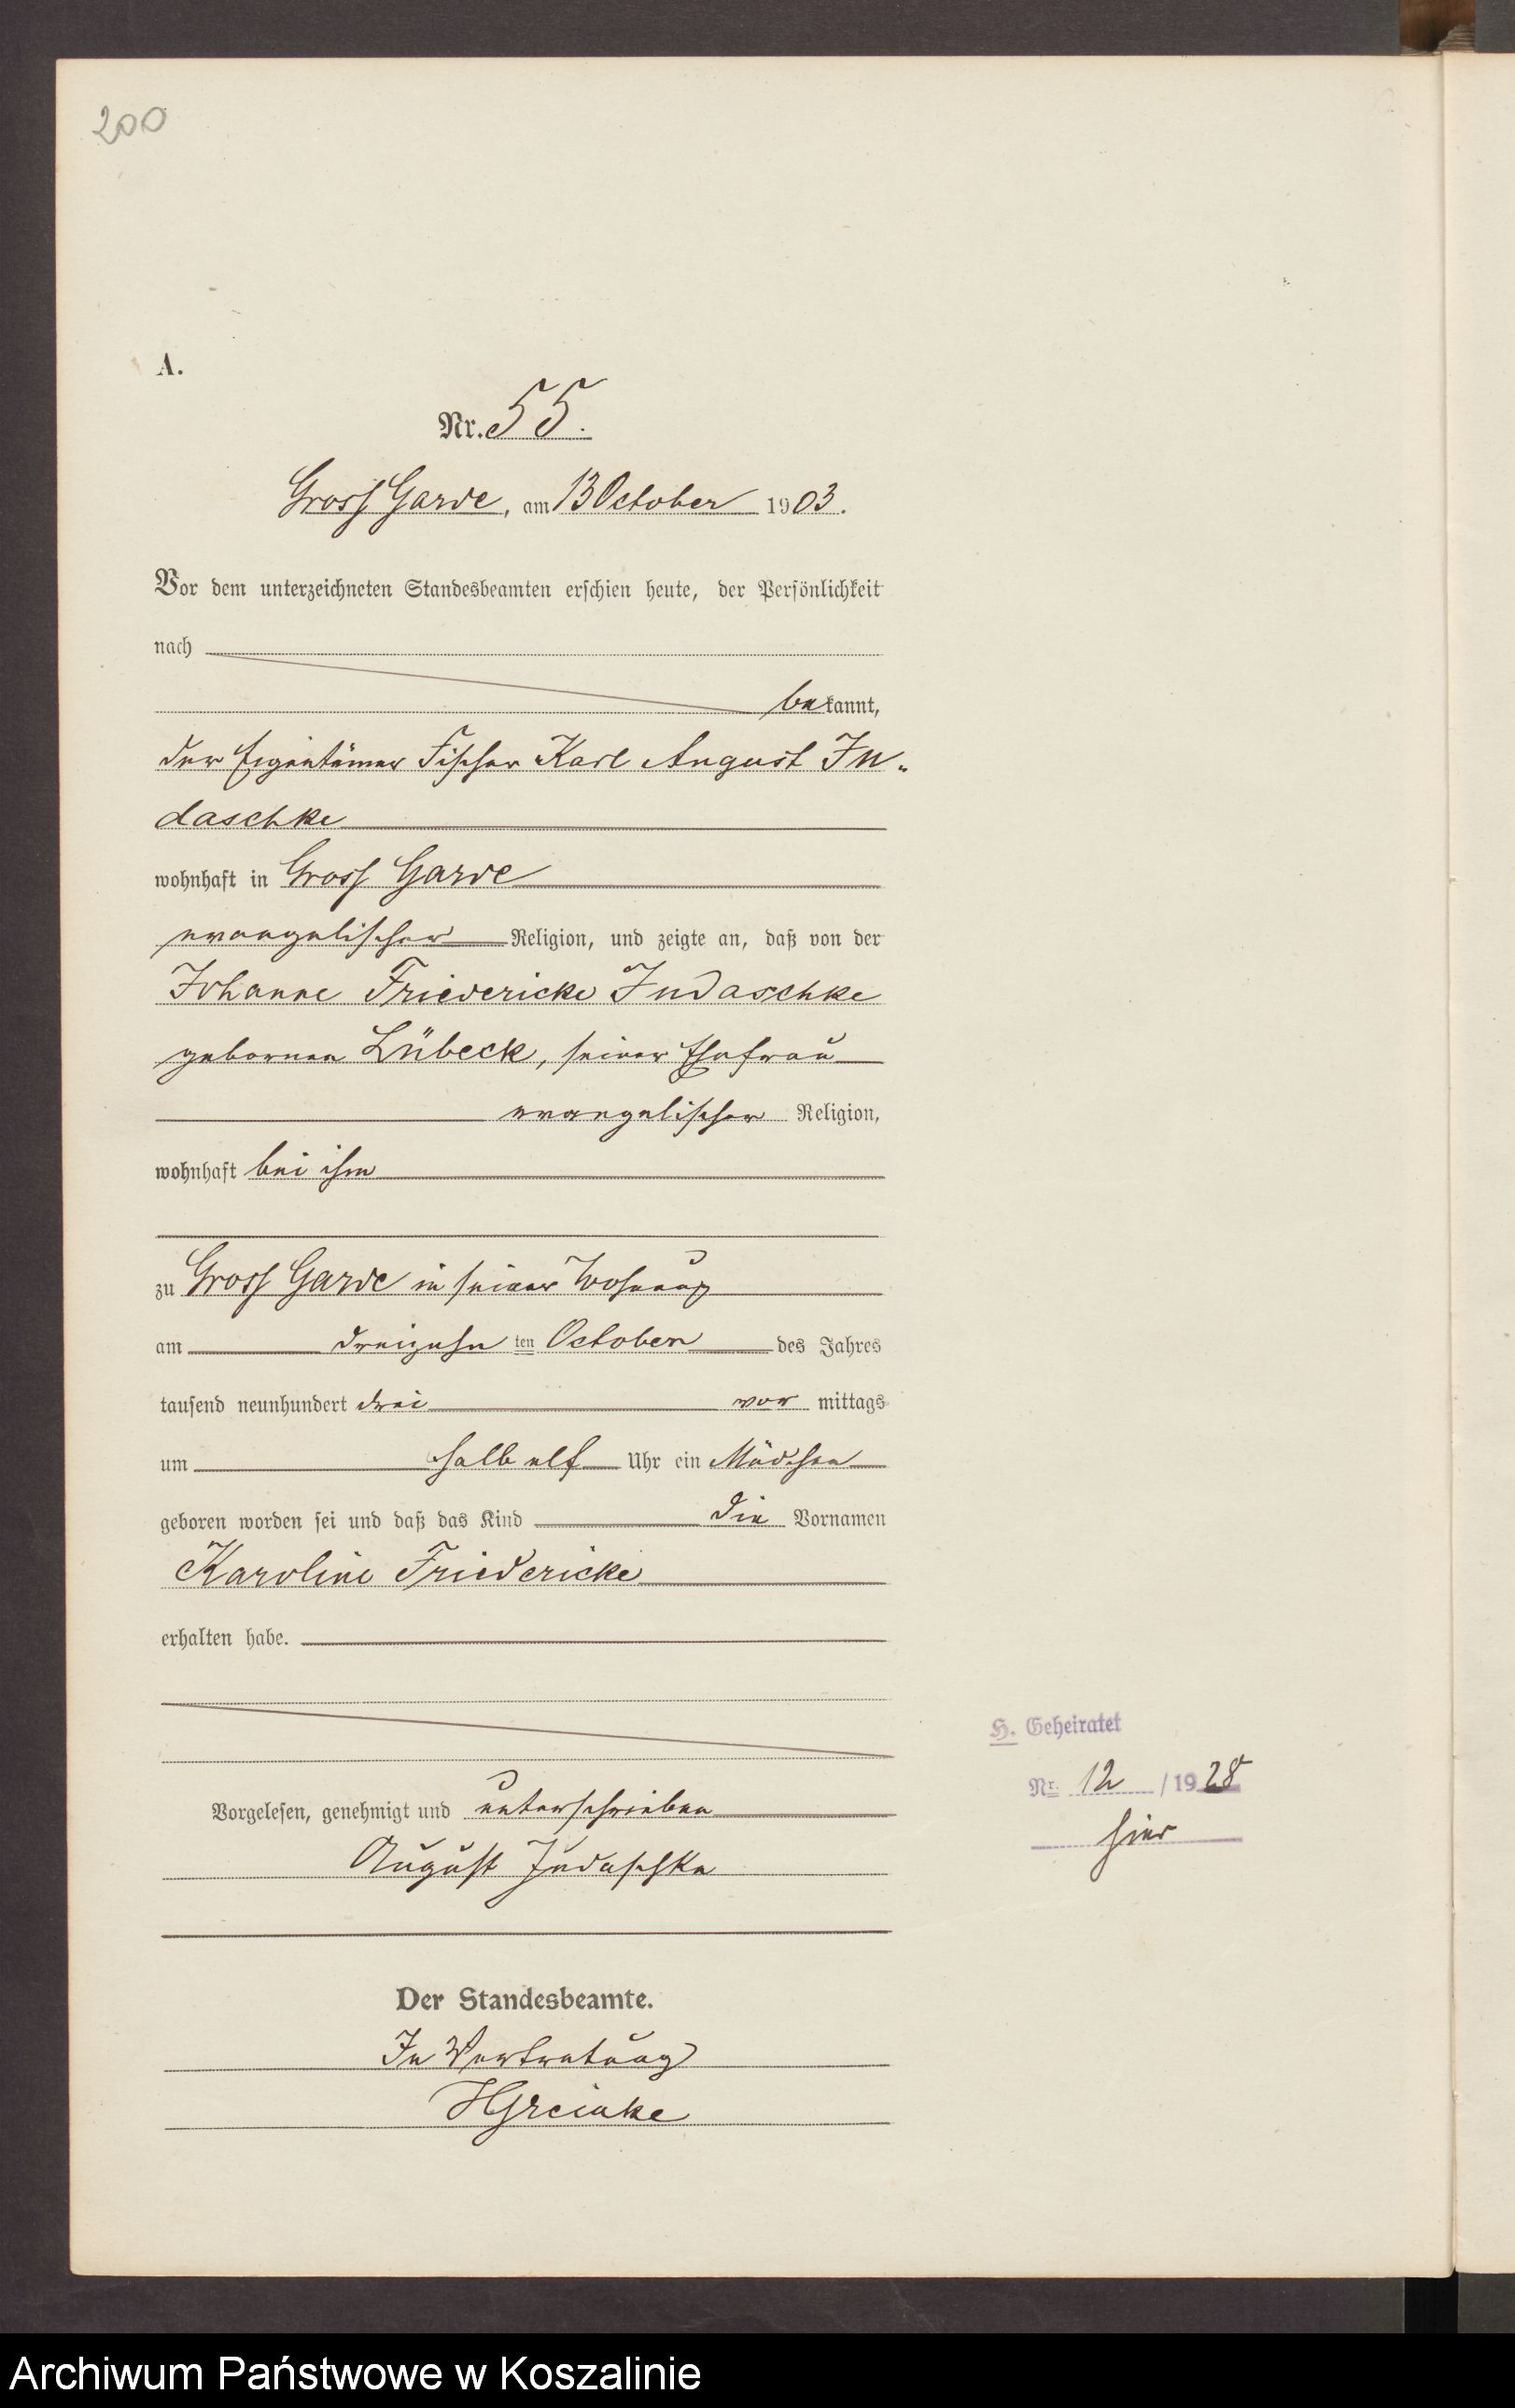 200
A.
Nr. 55.
Gross Garde, am 13 October 1903.
Vor dem unterzeichneten Standesbeamten erschien heute, der Persönlichkeit
nach
bekannt,
der Eigentümer Fischer Karl August Ju-
daschke
wohnhaft in Gross Garde
evangelischer Religion, und zeigte an, daß von der
Johanne Friedericke Judaschke
gebornen Lübeck, seiner Ehefrau
evangelischer Religion,
wohnhaft bei ihm
zu Gross Garde in seiner Wohnung
am dreizehn ten October des Jahres
tausend neunhundert drei vor mittags
um halb elf Uhr ein Mädchen
geboren worden sei und daß das Kind die Vornamen
Karoline Friedericke
erhalten habe.
Vorgelesen, genehmigt und unterschrieben
August Judaschke
Der Standesbeamte.
In Vertretung
HGreinke
H. Geheiratet
Nr. 12 / 1928
hier
Archiwum Państwowe w Koszalinie